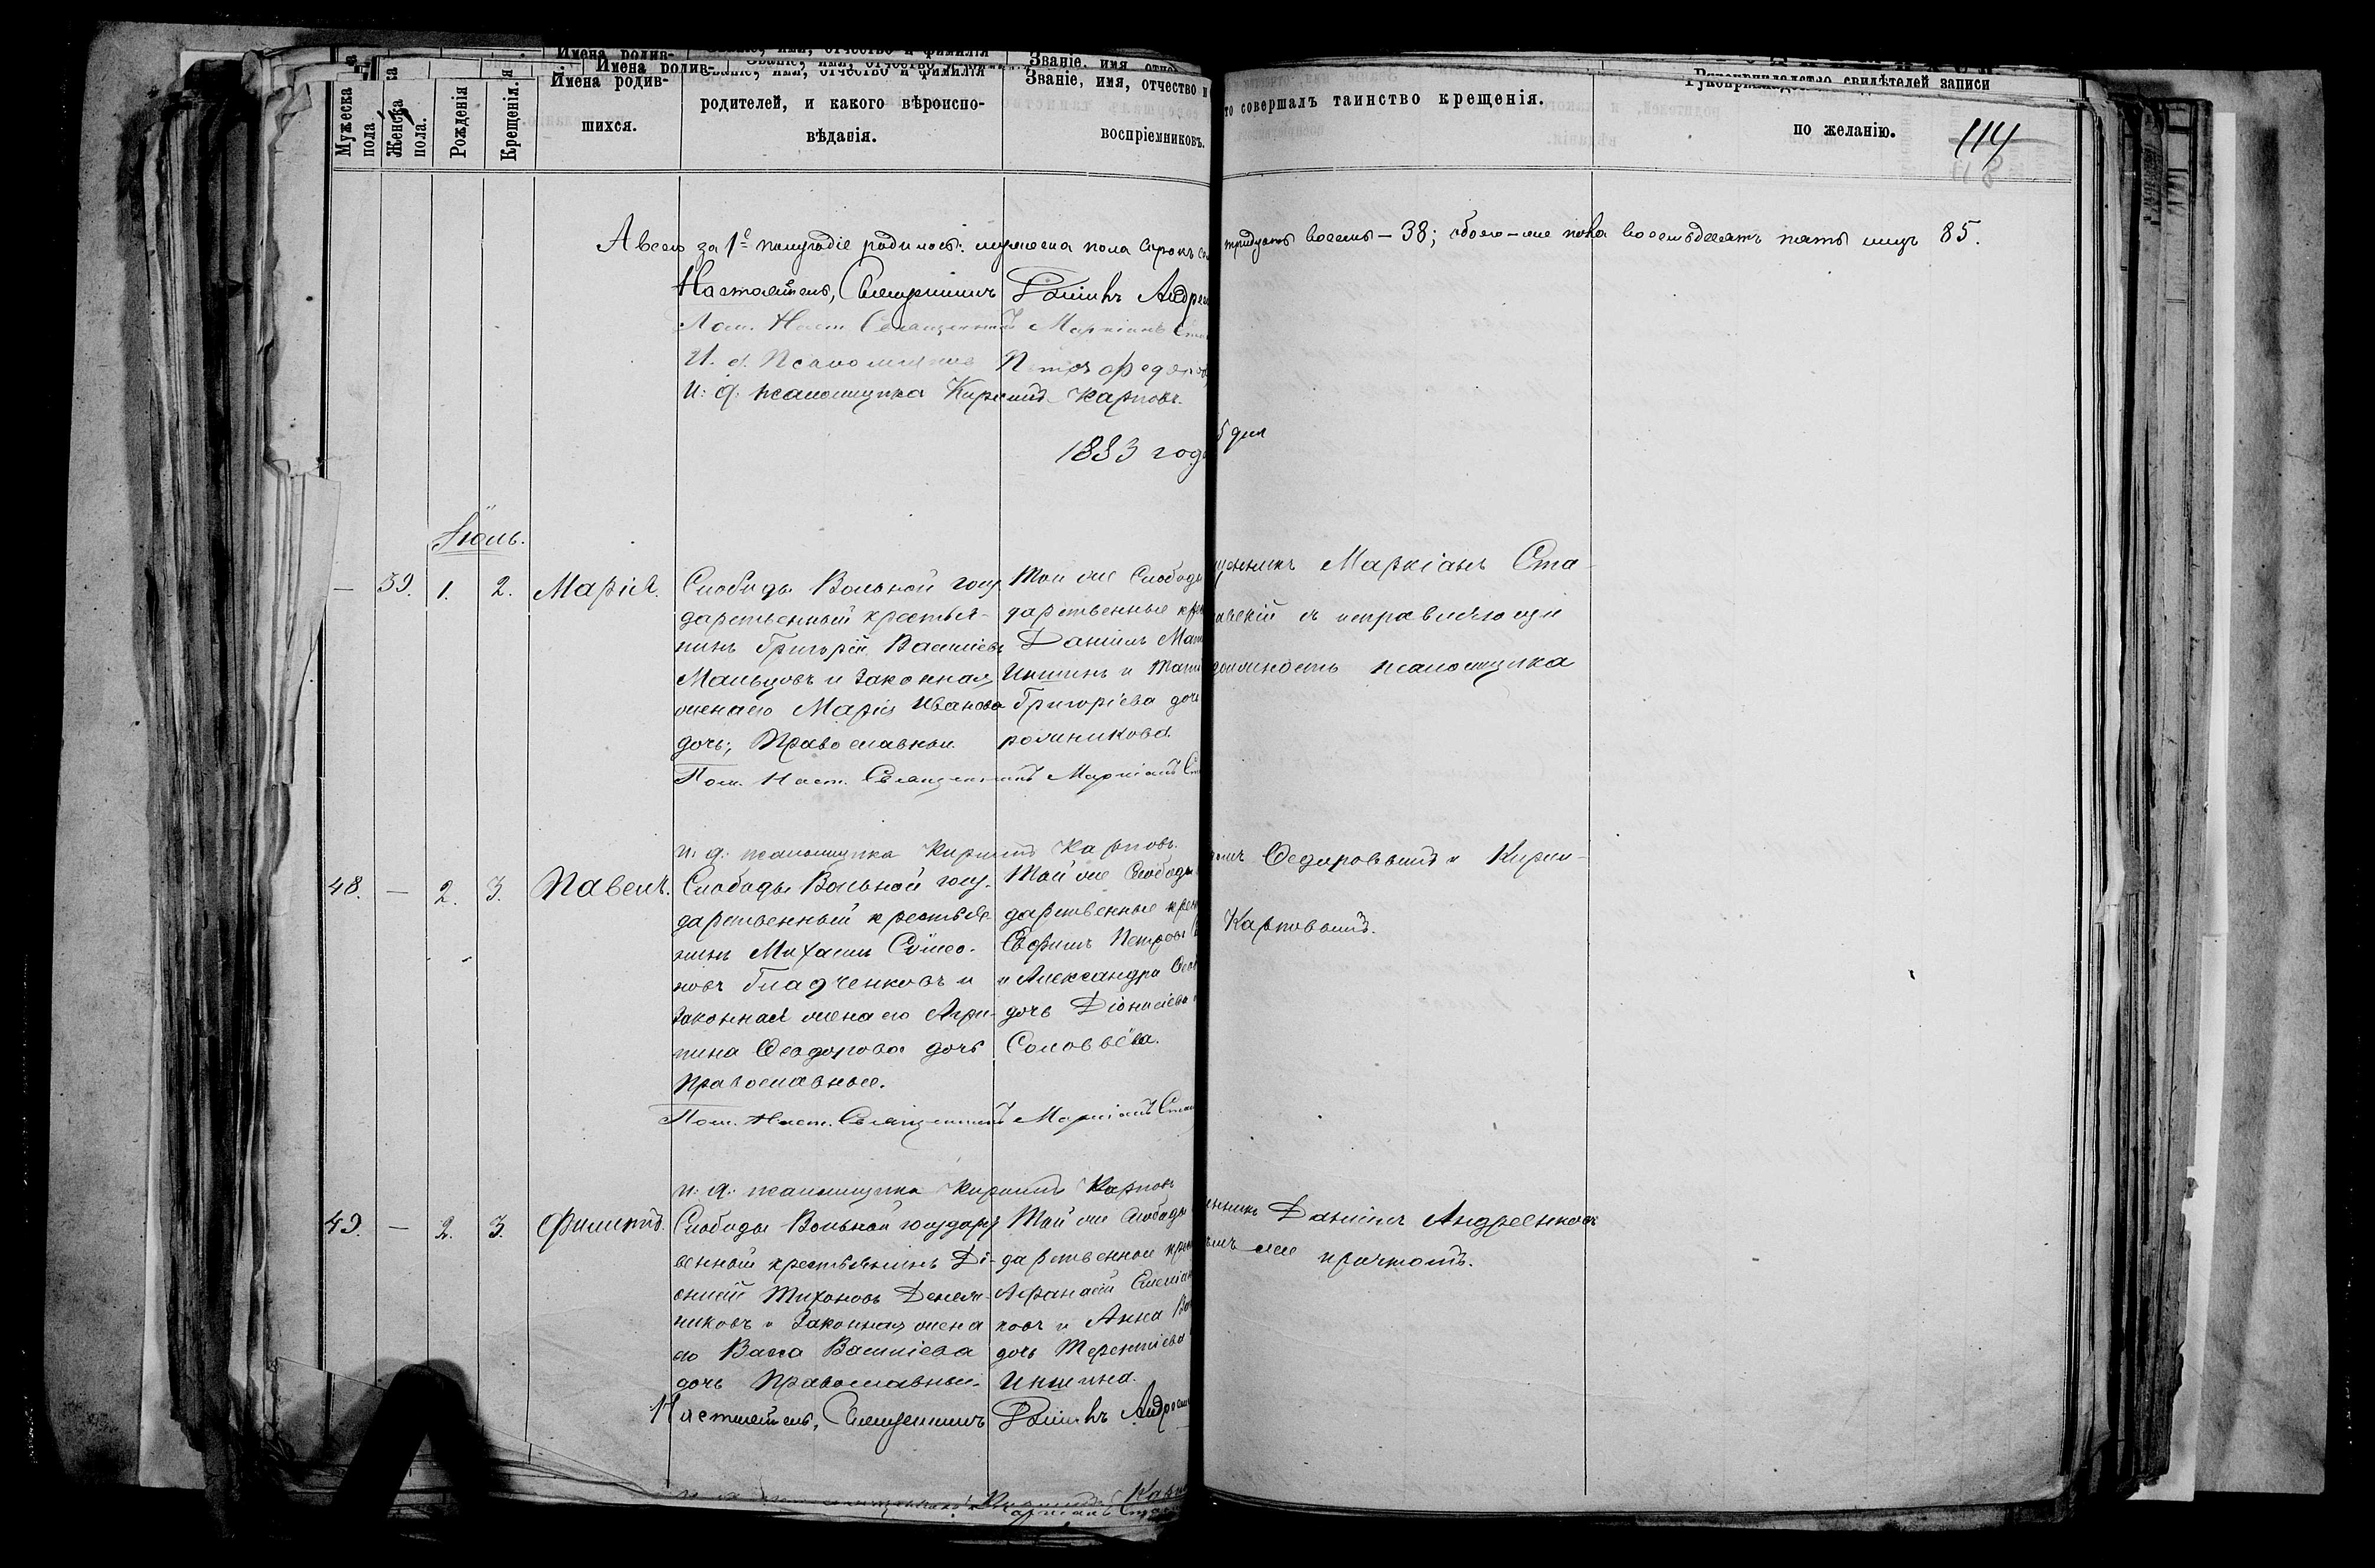 Мужеска пола
Женска пола.
Рожденія
Крещенія.
Имена родив-
шихся.
Званіе, имя, отчество и фамилія
родителей, и какого вѣроиспо-
вѣданія.
Званіе, имя, отчество и
воспріемниковъ.
совершалъ таинство крещенія.
Рукоприкладство свидѣтелей записи
по желанію.
114
А всего за 1е полугодіе родилось: мужеска пола сорокъ
тридцать восемь – 38; обоего-же пола восемьдесятъ пять лицъ 85.
Настоятель, Священникъ Даніилъ Андрее
Пом. Наст. Священникъ Маркіанъ Ста
И. д. Псаломщика Петръ Федоров
И: д: псаломщика Кириллъ Карповъ.
1883 года
Іюль.
— 39. 1. 2. Марія.
Слободы Вольной госу
дарственный крестья-
нинъ Григорій Васильевъ
Мальцовъ и законная
жена его Марія Иванова
дочь; Православные.
Той же Слободы
дарственные кре
Даніилъ
Иншинъ и
Григоріева доч
рошникова.
щенникъ Маркіанъ Ста-
авскій съ исправляющи
должность псаломщика
Пом. Наст. Священникъ Маркіанъ Ст
И: д: псаломщика Кириллъ Карповъ.
48. — 2. 3. Павелъ.
Слободы Вольной госу-
дарственный крестья
нинъ Михаилъ Симео-
новъ Гладченковъ и
законная жена его Агри-
пина Ѳеодорова дочь
Православные.
Той же Слободы
дарственные крес
Ефимъ Петровъ
и Александра
дочь Діонисіева
Соловьёва.
Ѳедоровымъ и Кирил-
Карповымъ.
Пом. Наст. Священникъ Маркіанъ Став
И: д: псаломщика Кириллъ Карповъ
49. — 2. 3. Филиппъ.
Слободы Вольной государст
венный крестьянинъ Ді-
онисій Тихоновъ
никовъ и законная жена
его Васса Васильева
дочь Православные.
Той же Слободы
дарственные крес
Аѳанасій Емеліан
ковъ и Анна
дочь Терентіева
Иншина.
щенникъ Даніилъ Андреенковъ
же причтомъ.
Настоятель, Священникъ Даніилъ Андреен